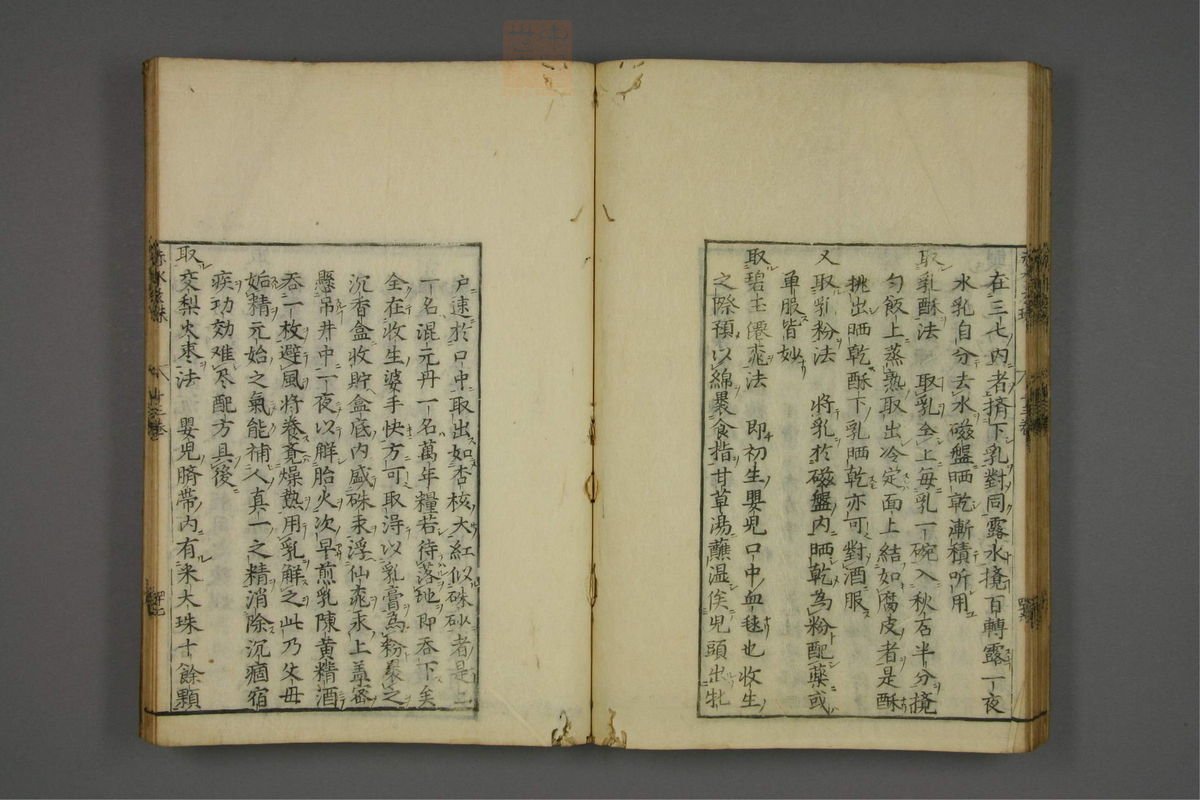 在三七内者擠下乳對同露水攪百轉露一夜
水乳自分去水磁盤晒乾漸積听用
取乳酥法　取乳全上每乳一碗入秋石半分攪
勻飯上蒸熟取出冷定面上結如腐皮者是酥
挑出晒乾酥下乳晒乾亦可對酒服
又取乳粉法　將乳於磁盤内晒乾為粉配藥或
單服皆妙
取碧玉僊桃法　即初生嬰兒口中血毬也收生
之際預以綿裹食指甘草湯蘸温俟兒頭出牝
户速於口中取出如杏核大紅似硃砂者是
一名混元丹一名萬年糧若待落地即吞下矣
全在收生婆手快方可取得以乳膏為粉裹之
沉香盒收貯盒底内盛硃汞浮仙桃汞上盖密
懸吊井中一夜以解胎火次早煎乳陳黄精酒
吞一枚避風將養吝燥熱用乳解之此乃父母
姤精元始之氣能補人真一之精消除沉痼宿
疾功効难尽配方具後
取交梨火枣法　嬰兒臍帶内有米大珠十餘顆